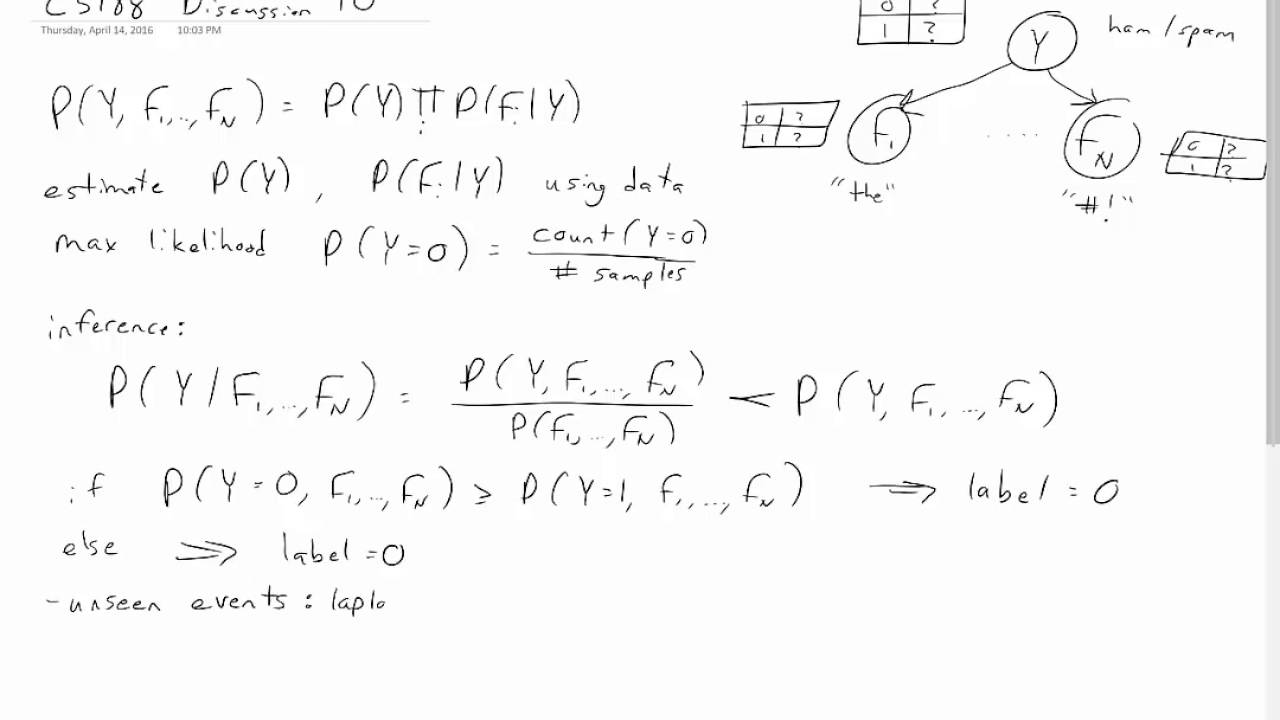 CS188 Discussion 10
Thursday, April 14, 2016 10:03 PM
0 ?
1 ?
Y ham/spam
P(Y, F₁,..., F_N) = P(Y) ∏ᵢ P(Fᵢ|Y)
0 ?
1 ?
F₁ .... F_N
0 ?
1 ?
"the" "#!"
estimate P(Y), P(Fᵢ|Y) using data
max likelihood P(Y=0) = count(Y=0)
# samples
inference:
P(Y|F₁,...,F_N) = P(Y, F₁,..., F_N) ∝ P(Y, F₁,..., F_N)
P(F₁,...,F_N)
if P(Y=0, F₁,..., F_N) ≥ P(Y=1, F₁,..., F_N) ⇒ label = 0
else ⇒ label = 0
- unseen events: lapla